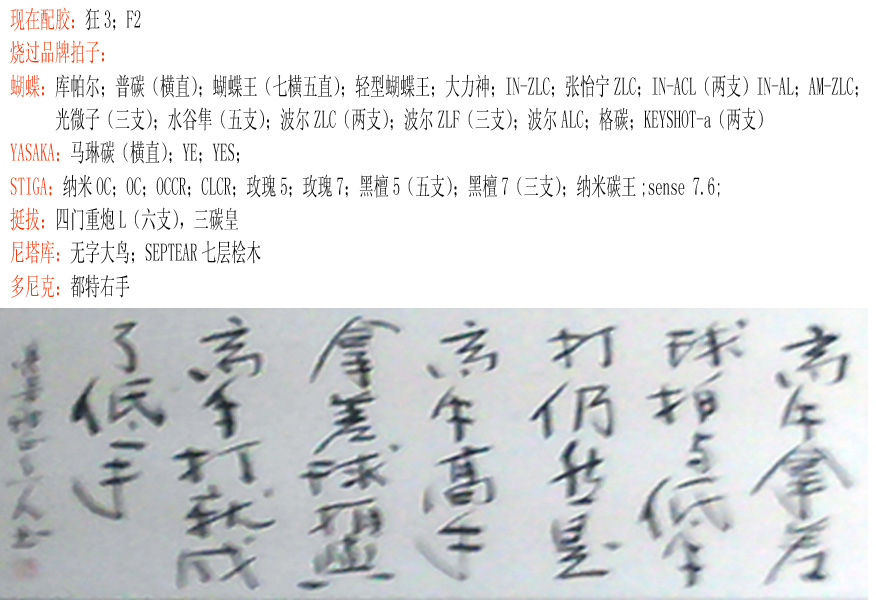 现在配胶：狂3；F2
烧过品牌拍子：
蝴蝶：库帕尔；普碳（横直）；蝴蝶王（七横五直）；轻型蝴蝶王；大力神；IN-ZLC；张怡宁ZLC；IN-ACL（两支）IN-AL；AM-ZLC；
光微子（三支）；水谷隼（五支）；波尔ZLC（两支）；波尔ZLF（三支）；波尔ALC；格碳；KEYSHOT-a（两支）
YASAKA：马琳碳（横直）；YE；YES；
STIGA：纳米OC；OC；OCCR；CLCR；玫瑰5；玫瑰7；黑檀5（五支）；黑檀7（三支）；纳米碳王;sense 7.6;
挺拔：四门重炮L（六支），三碳皇
尼塔库：无字大鸟；SEPTEAR七层桧木
多尼克：都特右手
高手拿差
球拍与低手
打仍然是
高手高手
拿差球拍與
高手打就成
了低手